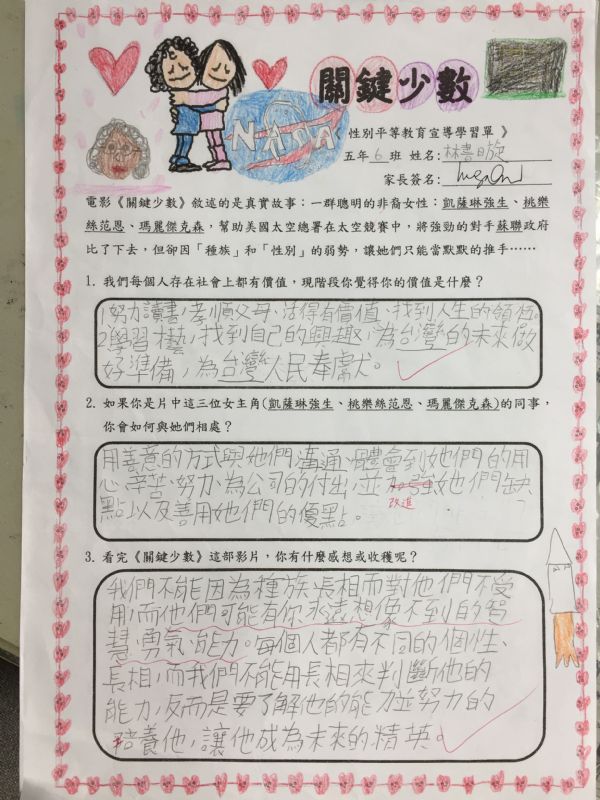 關鍵少數
NASA
《 性別平等教育宣導學習單 》
五年 6 班 姓名:林書日旋
家長簽名:
電影《關鍵少數》敘述的是真實故事:一群聰明的非裔女性:凱薩琳強生、桃樂
絲范恩、瑪麗傑克森,幫助美國太空總署在太空競賽中,將強勁的對手蘇聯政府
比了下去,但卻因「種族」和「性別」的弱勢,讓她們只能當默默的推手……
1. 我們每個人存在社會上都有價值,現階段你覺得你的價值是什麼?
1努力讀書,孝順父母、活得有價值、找到人生的領域。
2學習才藝,找到自己的興趣,為台灣的未來做
好準備,為台灣人民奉獻。
2. 如果你是片中這三位女主角(凱薩琳強生、桃樂絲范恩、瑪麗傑克森)的同事,
你會如何與她們相處?
用善意的方式與她們溝通,體會到她們的用
心、辛苦、努力、為公司的付出,並加強她們缺
改進
點以及善用她們的優點。
3. 看完《關鍵少數》這部影片,你有什麼感想或收穫呢?
我們不能因為種族、長相而對他們不受
用,而他們可能有你永遠想像不到的智
慧、勇氣、能力。每個人都有不同的個性、
長相,而我們不能用長相來判斷他的
能力,反而是要了解他的能力並努力的
培養他,讓他成為未來的精英。